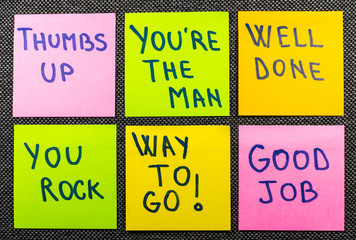 THUMBS
UP
YOU'RE
THE
MAN
WELL
DONE
YOU
ROCK
WAY
TO
GO!
GOOD
JOB